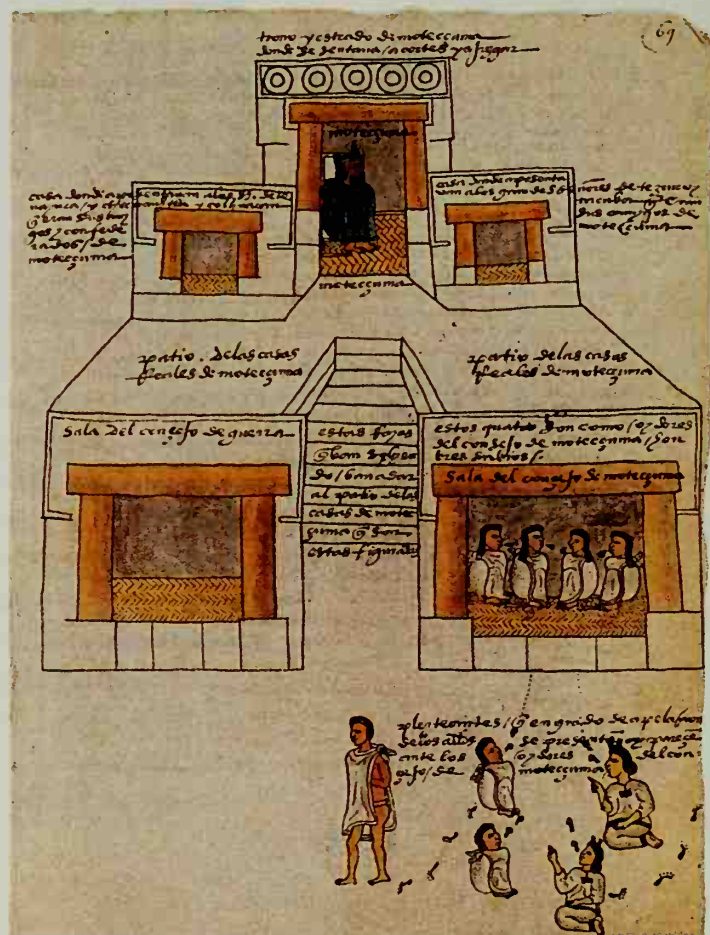 69
trono y estrado de moteccuma
donde se sentaua a cortes y a juzgar
moteccuma
casa donde aposentauan a los
gos y confede
rados / de
moteccuma
casa donde aposenta
van a los grãdes s
ñores de tezcuco y
tacuba
sus amygos de
moteccuma
moteccuma
patio . de las casas
Reales de moteccuma
patio de las casas
Reales de moteccuma
Sala del consejo de guerra
estas Rayas
van
do / van a dar
al patio de las
casas de mote
çuma
estas figuradas
estos quatro son como / oydores
del consejo de moteccuma / hon
bres sabios /.
Sala del consejo de moteccuma
pleyteantes / q̃ en grado de apelaçion
de los se presentan y pareçẽ
ante los / oydores del con
sejo / de moteccuma